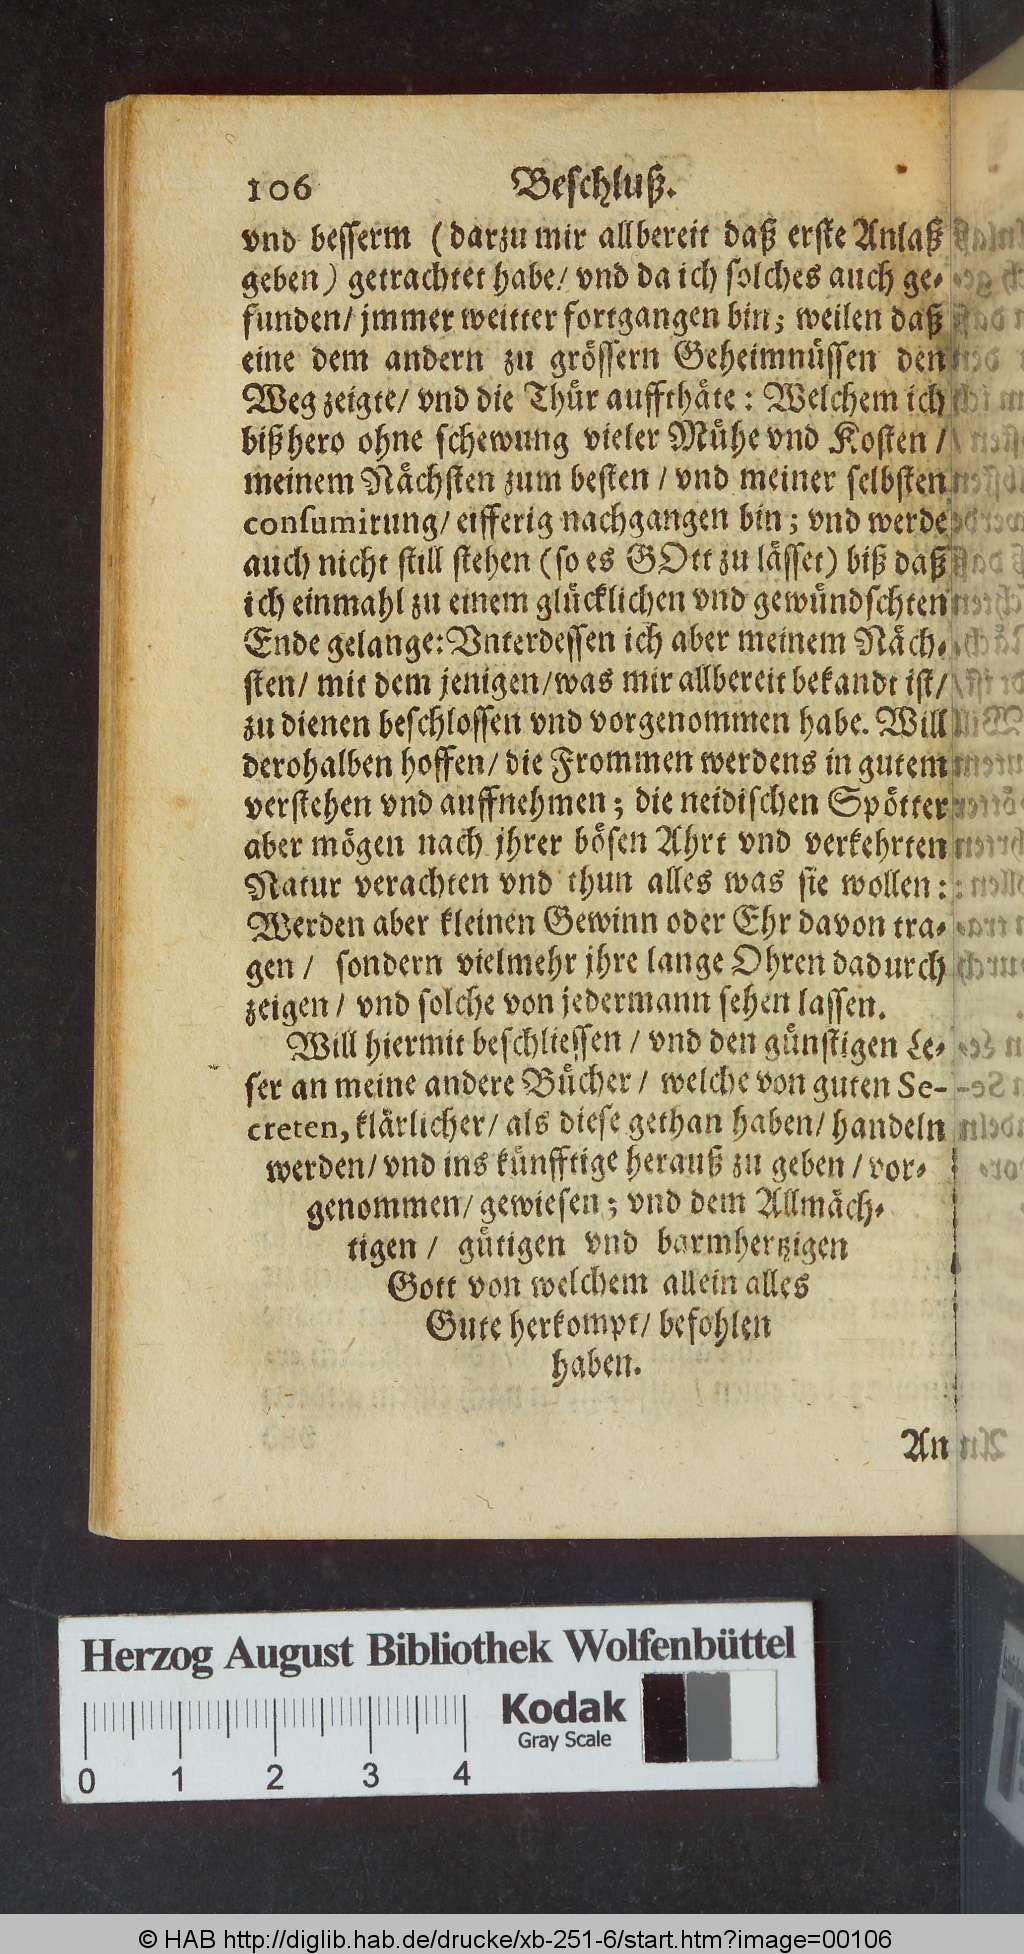 106 Beschluß.
vnd besserm (darzu mir allbereit daß erste Anlaß
geben) getrachtet habe/ vnd da ich solches auch ge-
funden/ jmmer weitter fortgangen bin; weilen daß
eine dem andern zu grössern Geheimnüssen den
Weg zeigte/ vnd die Thür auffthäte: Welchem ich
bißhero ohne schewung vieler Mühe vnd Kosten/
meinem Nächsten zum besten/ vnd meiner selbsten
consumirung/ eifferig nachgangen bin; vnd werde
auch nicht still stehen (so es GOtt zu lässet) biß daß
ich einmahl zu einem glücklichen vnd gewündschten
Ende gelange: Vnterdessen ich aber meinem Näch-
sten/ mit dem jenigen/ was mir allbereit bekandt ist/
zu dienen beschlossen vnd vorgenommen habe. Will
derohalben hoffen/ die Frommen werdens in gutem
verstehen vnd auffnehmen; die neidischen Spötter
aber mögen nach jhrer bösen Ahrt vnd verkehrten
Natur verachten vnd thun alles was sie wollen:
Werden aber kleinen Gewinn oder Ehr davon tra-
gen/ sondern vielmehr jhre lange Ohren dadurch
zeigen/ vnd solche von jedermann sehen lassen.
Will hiermit beschliessen/ vnd den günstigen Le-
ser an meine andere Bücher/ welche von guten Se-
creten, klärlicher/ als diese gethan haben/ handeln
werden/ vnd ins künfftige herauß zu geben/ vor-
genommen/ gewiesen; vnd dem Allmäch-
tigen/ gütigen vnd barmhertzigen
Gott von welchem allein alles
Gute herkompt/ befohlen
haben.
An
Herzog August Bibliothek Wolfenbüttel
Kodak
Gray Scale
0 1 2 3 4
© HAB http://diglib.hab.de/drucke/xb-251-6/start.htm?image=00106